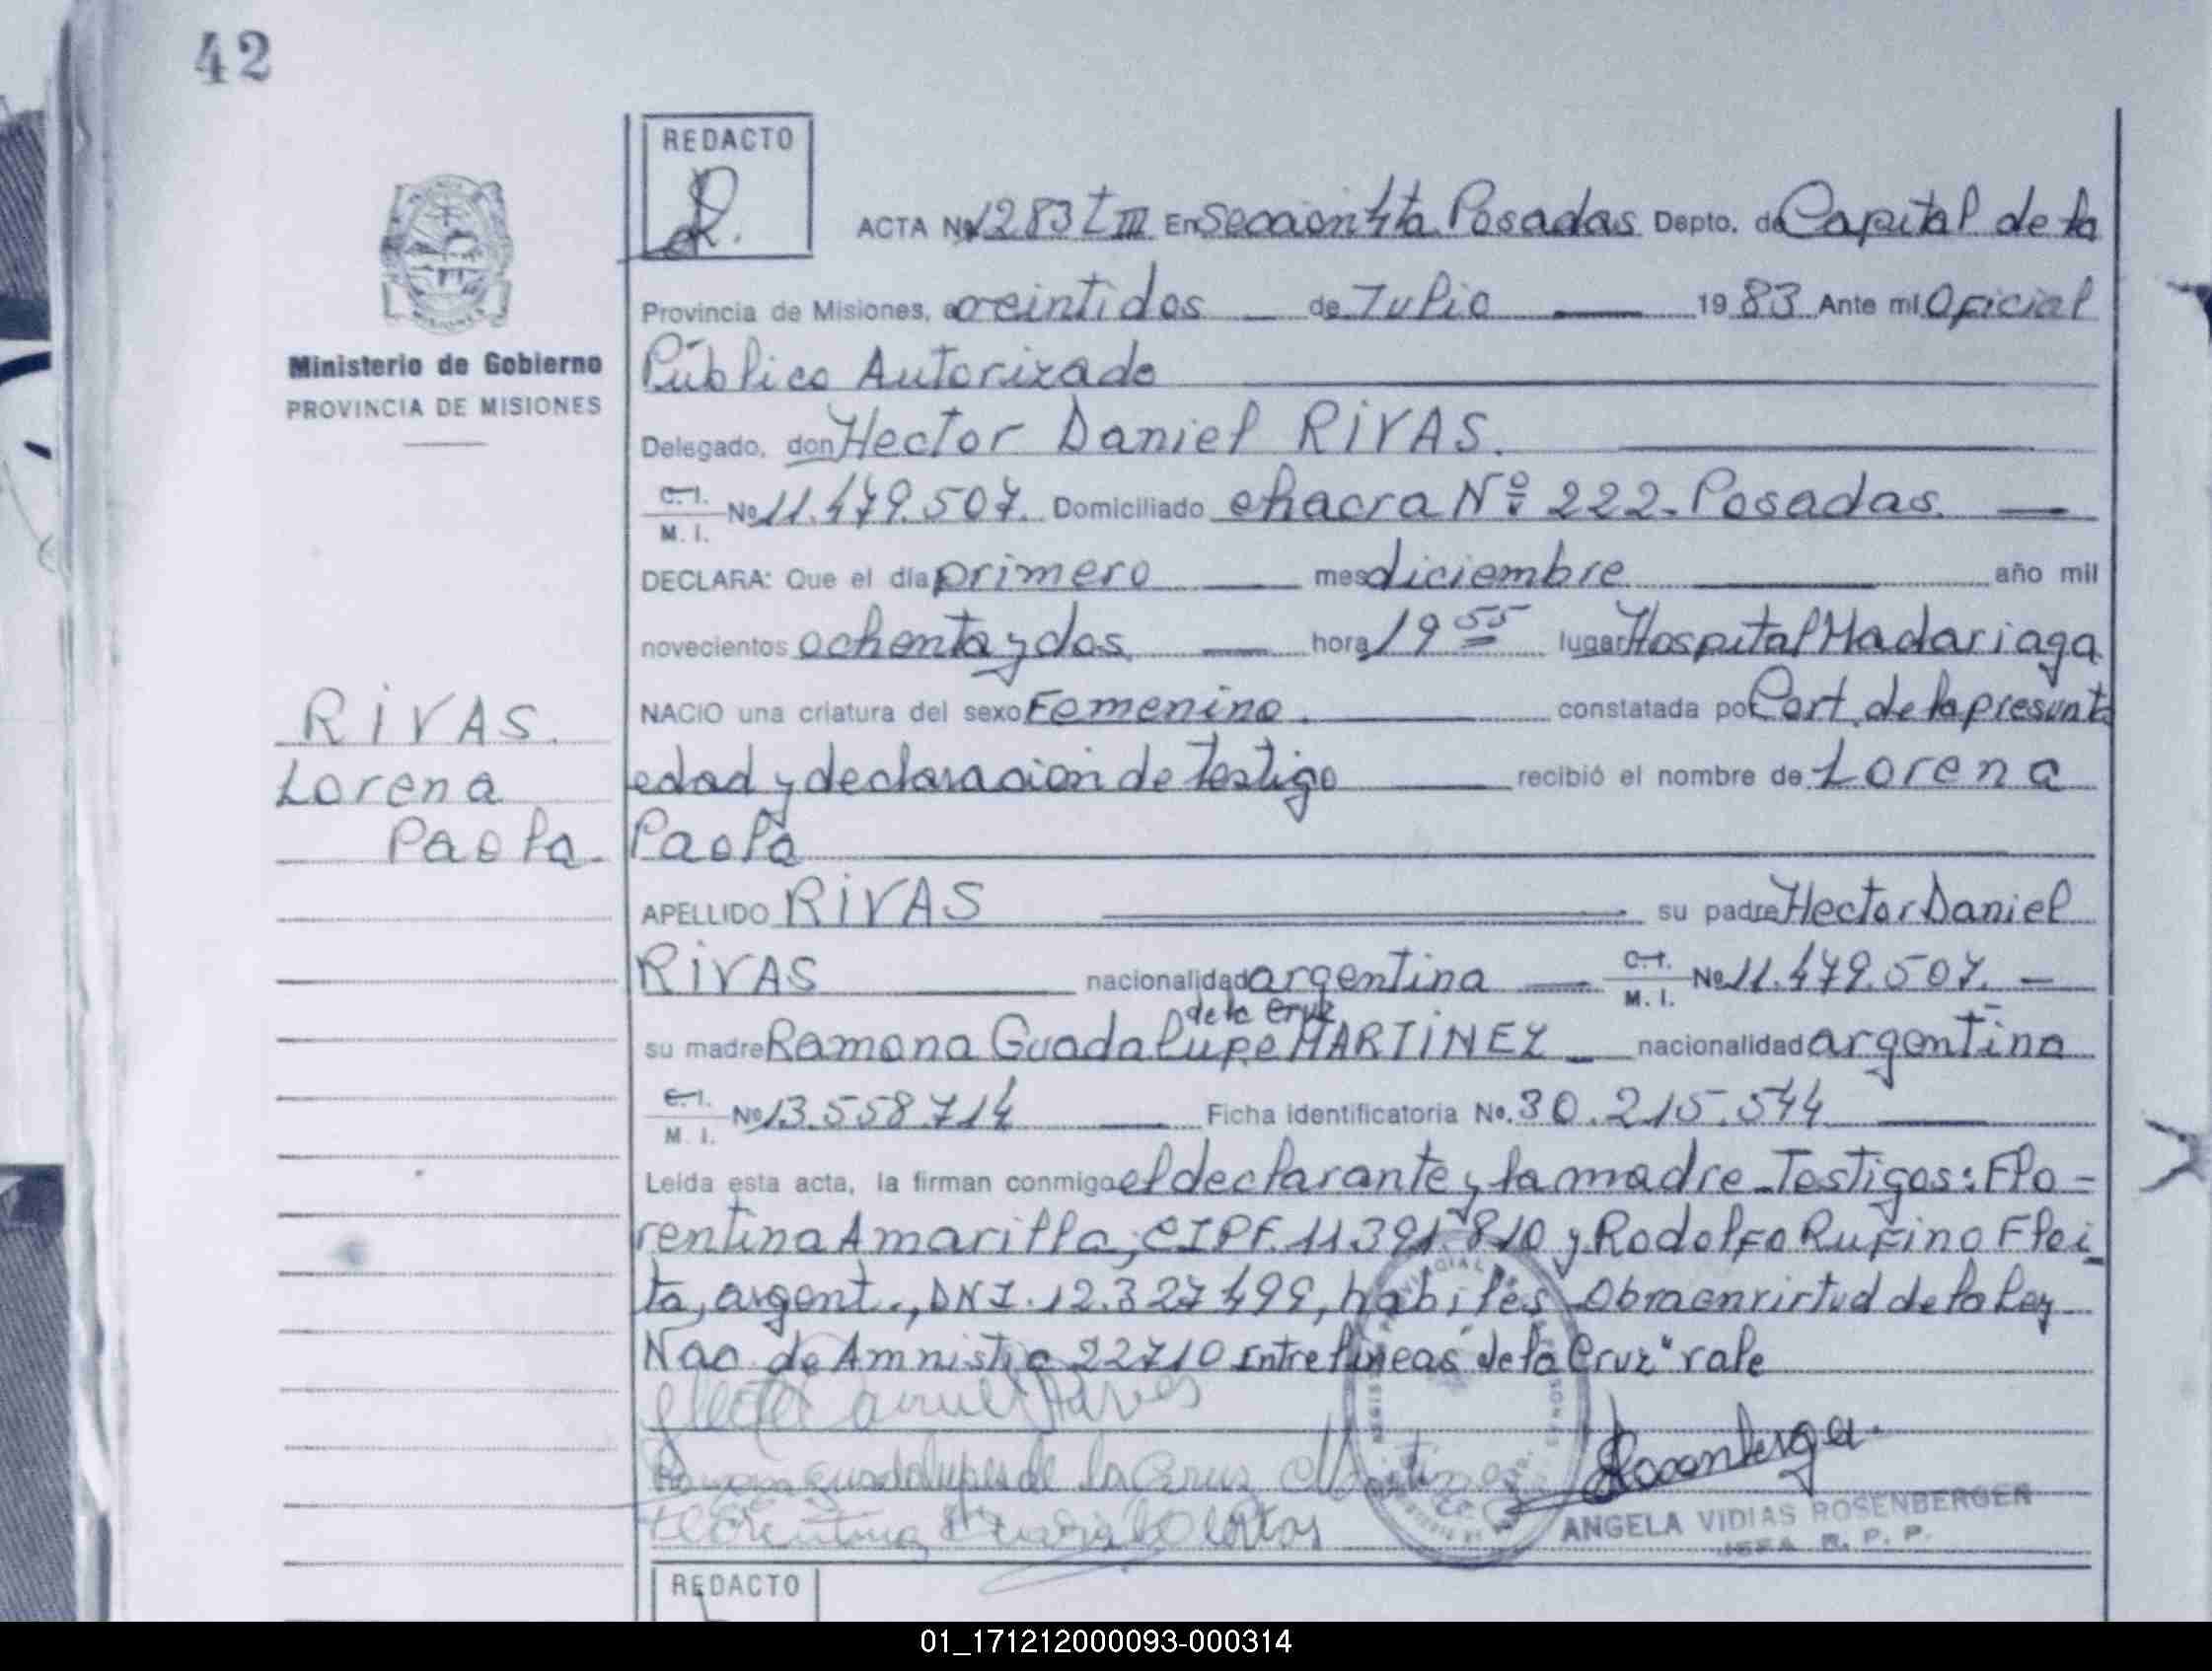 42
REDACTO
ACTA Nº 1283 t III En Sección 4ta Posadas Depto. de Capital de la
Provincia de Misiones, a veintidos de Julio 1983 Ante mi Oficial
Ministerio de Gobierno
PROVINCIA DE MISIONES
Público Autorizado
Delegado, don Hector Daniel RiVAS.
C.I. M. I. Nº 11.479.507. Domiciliado chacra Nº 222- Posadas.
DECLARA: Que el día primero mes diciembre año mil
novecientos ochenta y dos hora 19 55 lugar Hospital Madariaga
NACIO una criatura del sexo Femenino. constatada por Cert. de la presunta
RiVAS.
Lorena
Paola.
edad y declaracion de testigo recibió el nombre de Lorena
Paola
APELLIDO RiVAS su padre Hector Daniel
RiVAS nacionalidad argentina C.I. M. I. Nº 11.479.507.
de la Cruz
su madre Ramona Guadalupe MARTiNEZ nacionalidad argentina
C.I. M. I. Nº 13.558.714 Ficha identificatoria Nº. 30.215.544
Leída esta acta, la firman conmigo el declarante y la madre - Testigos: Flo-
rentina Amarilla, CIPF. 11391.810 y Rodolfo Rufino Flei_
ta, argent., DNI. 12.327499, habiles. Obra en virtud de la Ley
Nac. de Amnistia 22710 Entre líneas "de la Cruz" vale
Ramona Guadalupe de la Cruz
ANGELA VIDIAS ROSENBERGER
JEFA R. P. P.
REDACTO
01_171212000093-000314